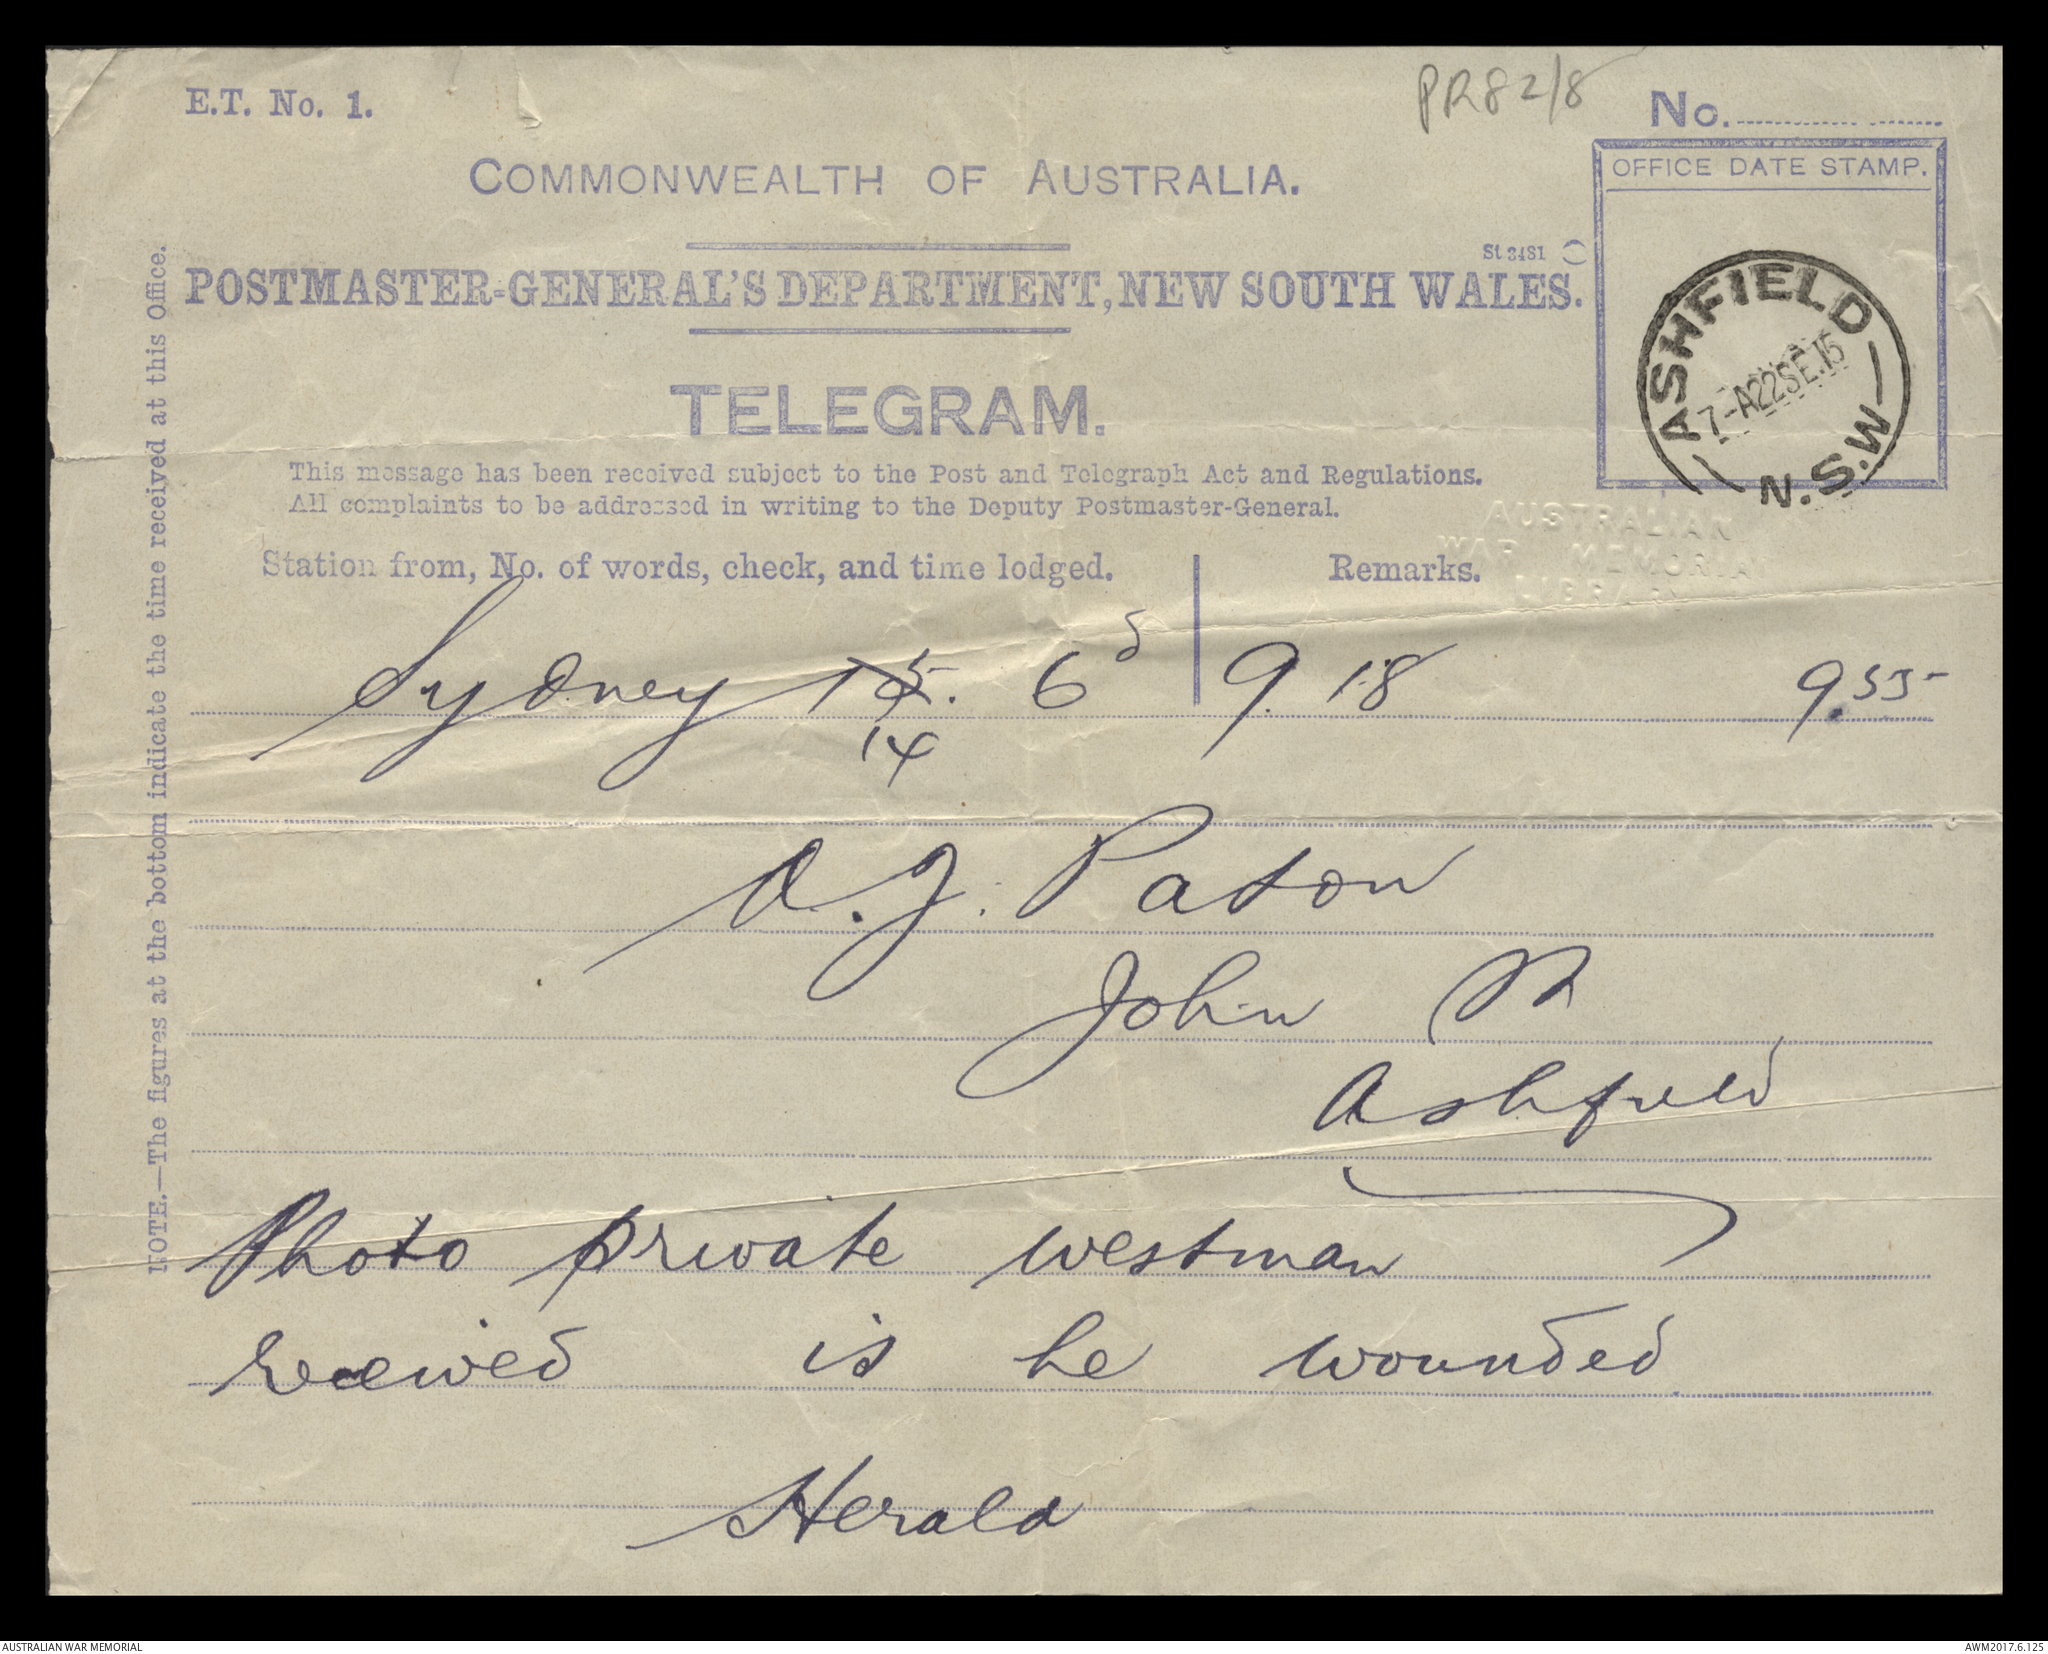 E.T. No. 1.
PR82/8
No.
COMMONWEALTH OF AUSTRALIA.
OFFICE DATE STAMP.
St 3481
POSTMASTER-GENERAL'S DEPARTMENT, NEW SOUTH WALES.
ASHFIELD
7-A22SE.15
N.S.W
TELEGRAM.
This message has been received subject to the Post and Telegraph Act and Regulations.
All complaints to be addressed in writing to the Deputy Postmaster-General.
AUSTRALIAN
WAR MEMORIAL
LIBRARY
Station from, No. of words, check, and time lodged.
Remarks.
Sydney 15. 6 s 9.18 9.55
14
A. J. Paton
John St
Ashfield
Photo private westman
received is he wounded
Herald
NOTE.—The figures at the bottom indicate the time received at this Office.
AUSTRALIAN WAR MEMORIAL
AWM2017.6.125